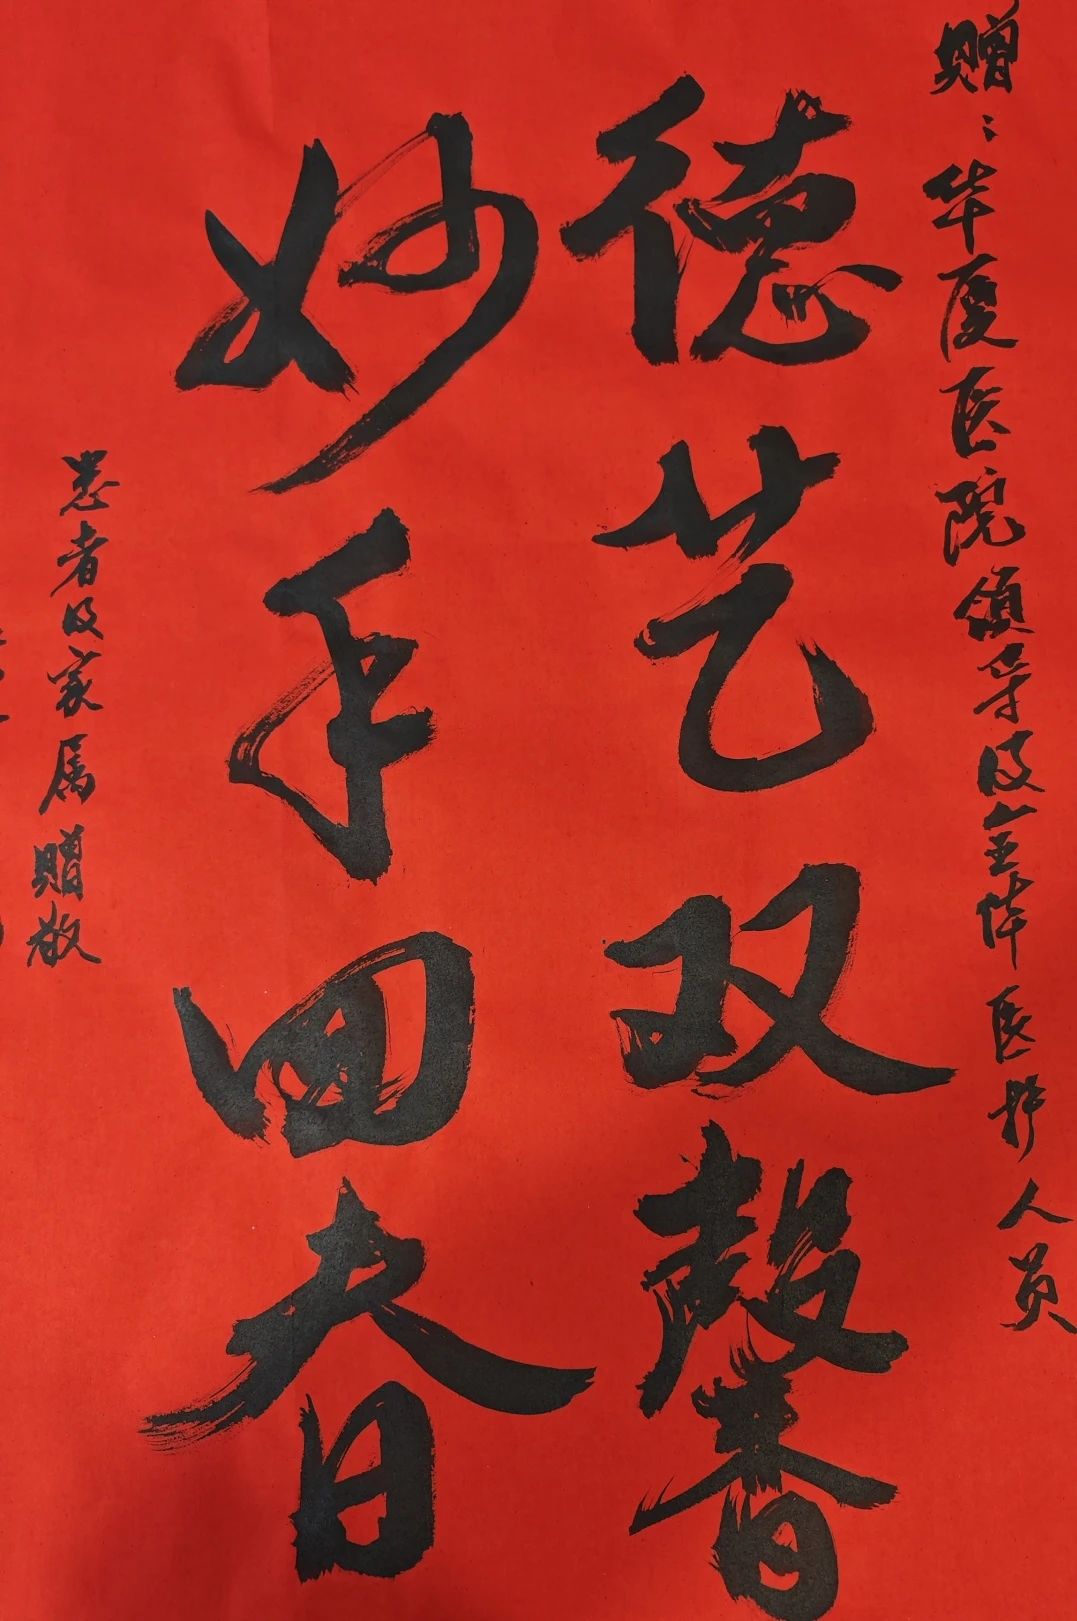 赠：华厦医院领导及全体医护人员
德艺双馨
妙手回春
患者及家属赠敬